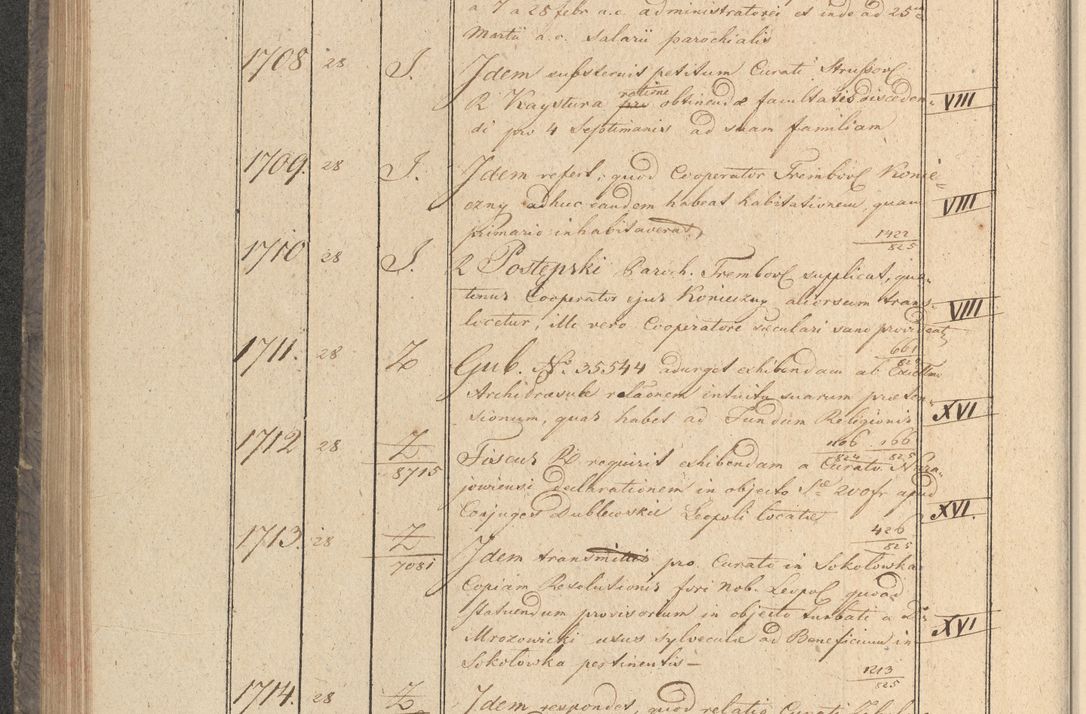 a 7 a 28 febr a.c. administratorei et inde ad 25ta
Martii a.c. salarii parochialis
1708 28 J. Idem substernit petitum Curati Strussov
R Kaystura ratione obtinendae facultatis disceden- VIII
di pro 4 Septimanis ad suam familiam
1709. 28 J. Idem refert, quod Cooperator Trembovl Konie-
czny adhuc eandem habeat habitationem, quam VIII
primario inhabitaverat,
1422
825
1710 28 J. R Postępski Paroch. Trembovl supplicat, qua-
tenus Cooperator ejus Konieczny aliorsum trans- VIII
locetur, illo vero Cooperatore saeculari sano provideat
661
824
1711. 28 Z Gub. No. 35544 adurget exhibendam ab Excellmo
Archipraesule relaonem intuitu suarum praeten-
sionum, quas habet ad Fundum Religionis XVI
166 166
824 825
1712 28 Z Fiscus R requirit exhibendam a Curato
8715
jowiensi declarationem in objecto 200 fr apud
Conjuges Dublewskie Leopoli locatae XVI.
426
825
1713. 28 Z Idem transmittit pro Curato in Sokolowka
7081
Copiam Resolutionis fori Nob. Leopol quoad
statuendum provisorium in objecto turbati a
Mrozowicki usus sylvecula ad Beneficium in XVI
Sokolowka pertinentis—
1213
825
1714. 28 Z Idem respondet, quod relatio Curati